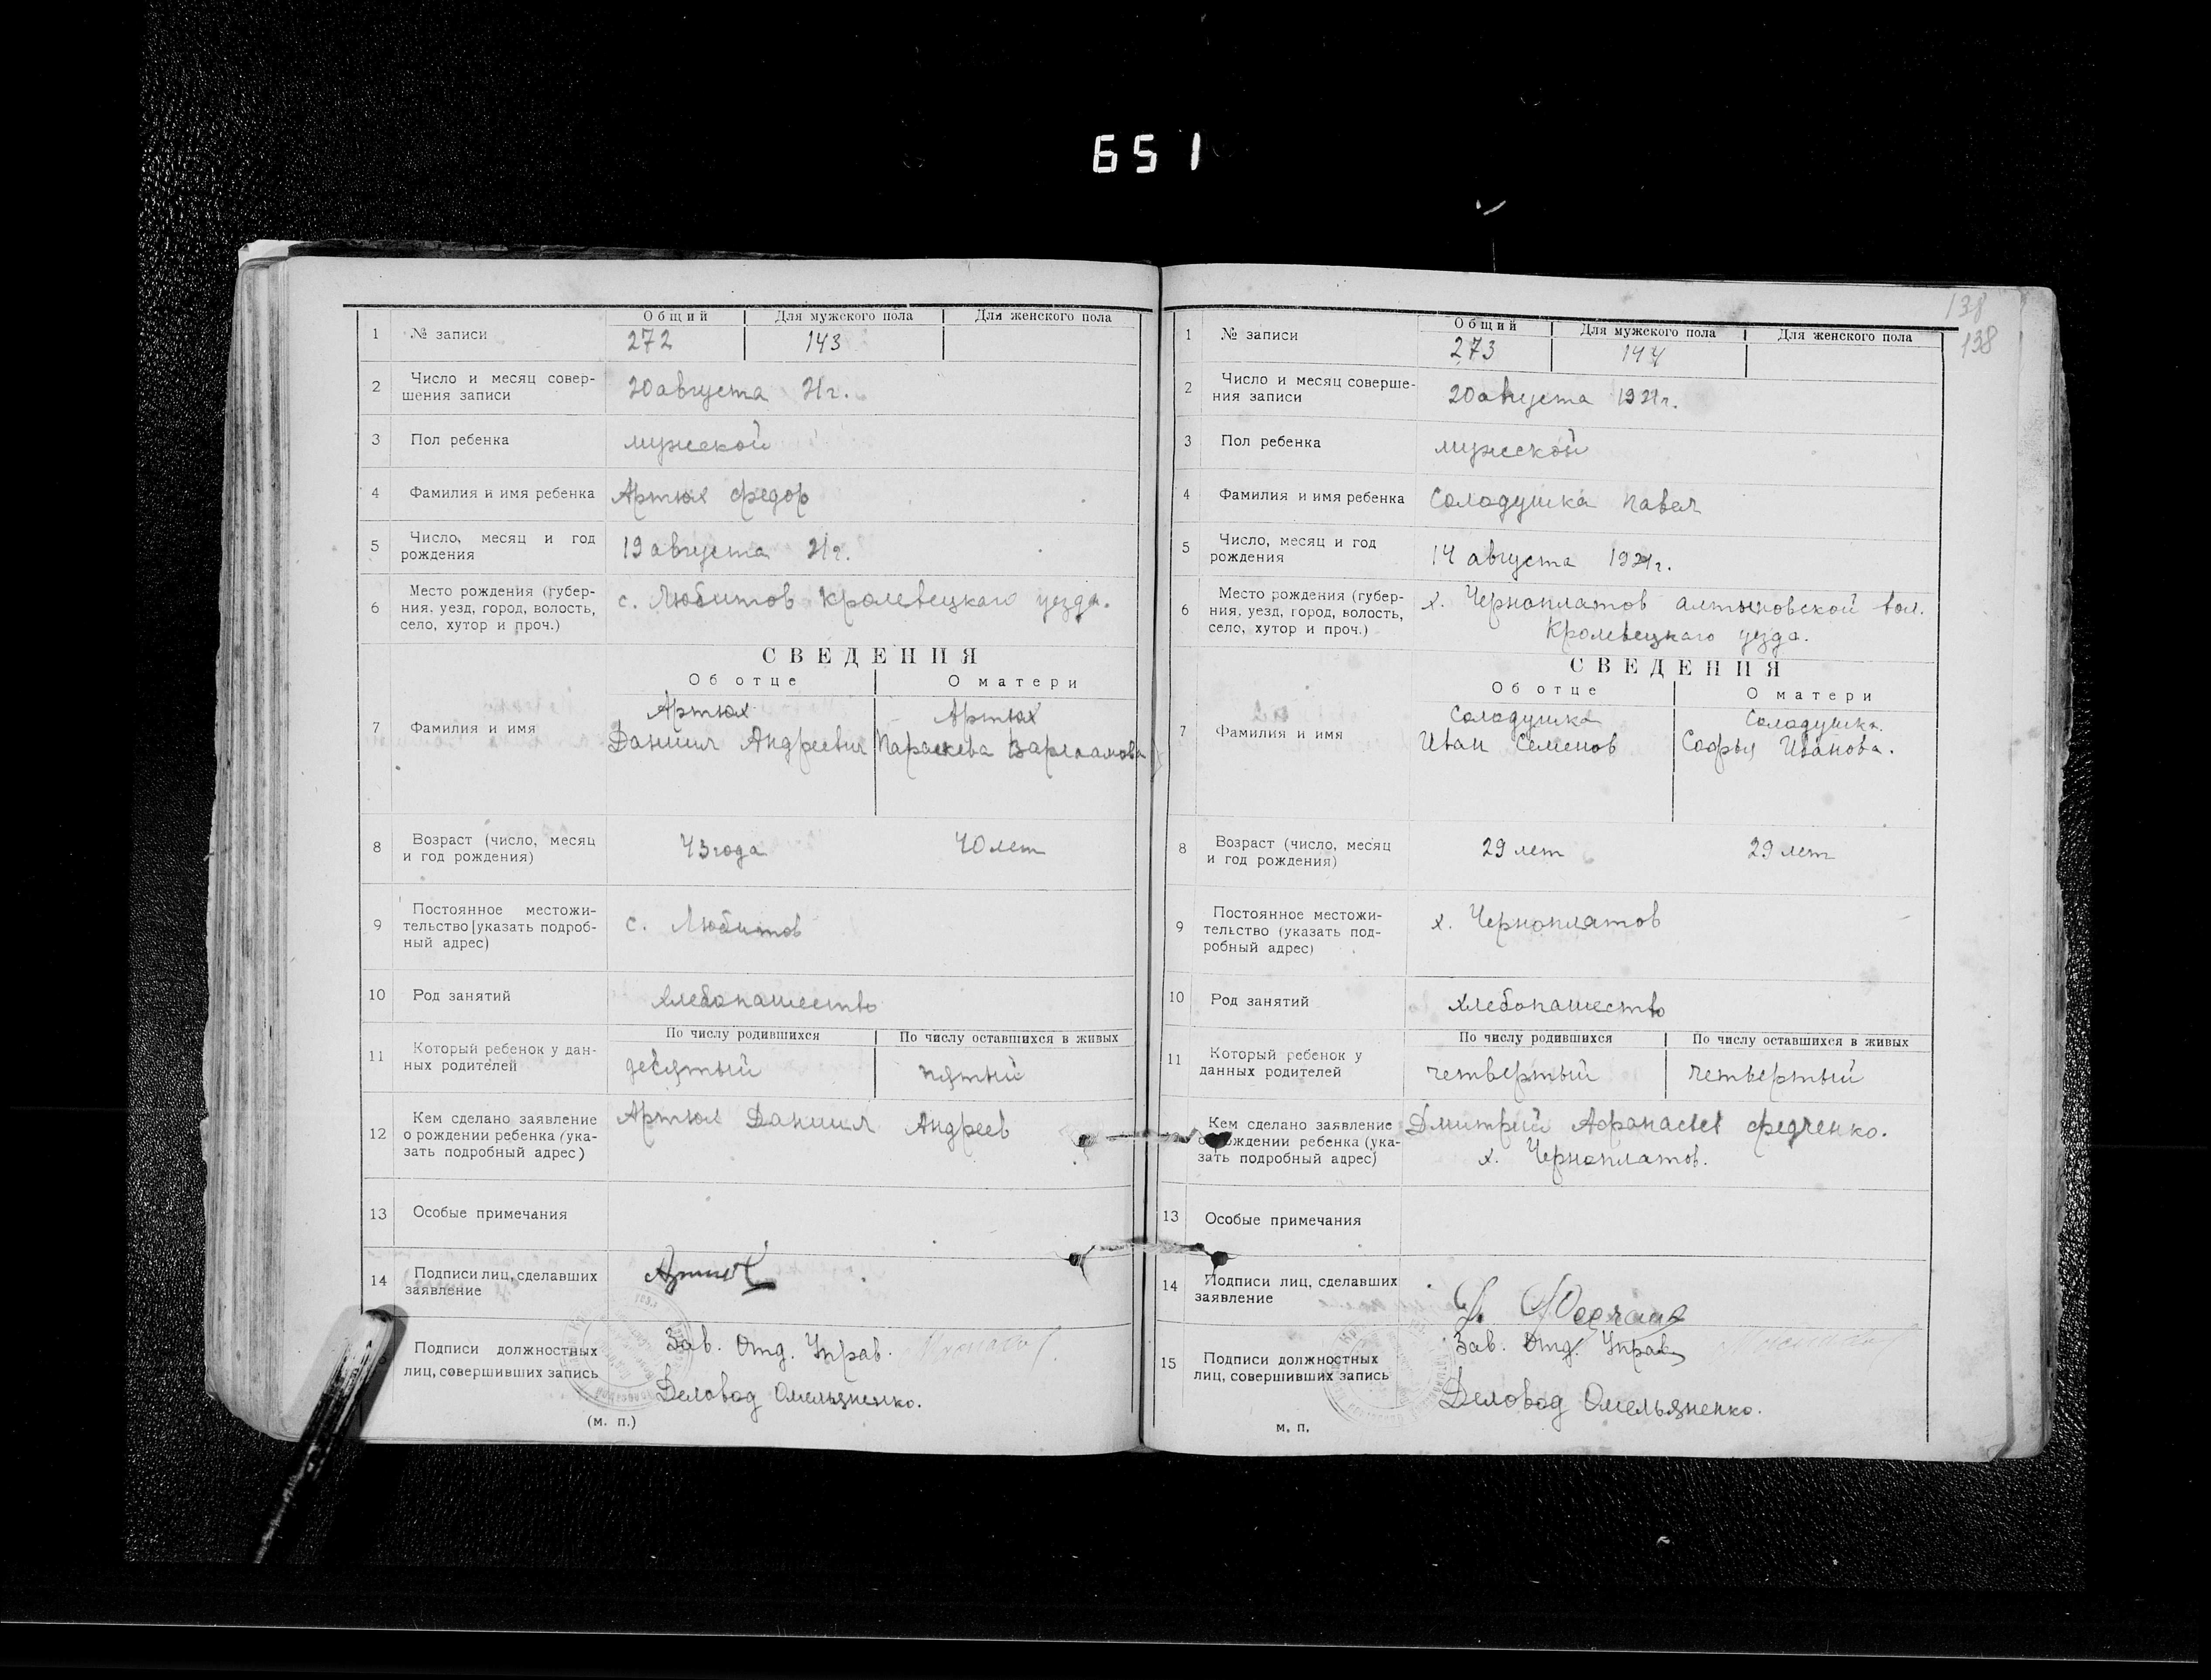 651
1 № записи Общий Для мужского пола Для женского пола
272 143
2 Число и месяц совер-
шения записи 20 августа 21 г.
3 Пол ребенка мужской
4 Фамилия и имя ребенка Артюх Федор
5 Число, месяц и год
рождения 19 августа 21 г.
6 Место рождения (губер-
ния, уезд, город, волость,
село, хутор и проч.) с. Любитов Кролевецкаго уезда.
СВЕДЕНИЯ
Об отце О матери
7 Фамилия и имя Артюх Артюх
Даниил Андреевич Параскева Варлаамова
8 Возраст (число, месяц
и год рождения) 43 года 40 лет
9 Постоянное местожи-
тельство [указать подроб-
ный адрес) с. Любитов
10 Род занятий хлебопашество
По числу родившихся По числу оставшихся в живых
11 Который ребенок у дан-
ных родителей десятый пятый
12 Кем сделано заявление
о рождении ребенка (ука-
зать подробный адрес) Артюх Даниил Андреев
13 Особые примечания
14 Подписи лиц, сделавших
заявление Артюх
Подписи должностных
лиц, совершивших запись Зав. Отд. Управ.
Деловод Омельяненко.
(м. п.)
138
138
1 № записи Общий Для мужского пола Для женского пола
273 144
2 Число и месяц соверше-
ния записи 20 августа 1921 г.
3 Пол ребенка мужской
4 Фамилия и имя ребенка Солодушка Павел
5 Число, месяц и год
рождения 14 августа 1921 г.
6 Место рождения (губер-
ния, уезд, город, волость,
село, хутор и проч.) х. Черноплатов Алтыновской вол.
Кролевецкаго уезда.
СВЕДЕНИЯ
Об отце О матери
7 Фамилия и имя Солодушка Солодушка.
Иван Семенов Софья Иванова.
8 Возраст (число, месяц
и год рождения) 29 лет 29 лет
9 Постоянное местожи-
тельство (указать под-
робный адрес) х. Черноплатов
10 Род занятий хлебопашество
По числу родившихся По числу оставшихся в живых
11 Который ребенок у
данных родителей четвертый четвертый
12 Кем сделано заявление
о рождении ребенка (ука-
зать подробный адрес) Дмитрий Афанасьев Федченко.
х. Черноплатов.
13 Особые примечания
14 Подписи лиц, сделавших
заявление
15 Подписи должностных
лиц, совершивших запись Зав. Отд. Управ
Деловод Омельяненко.
м. п.